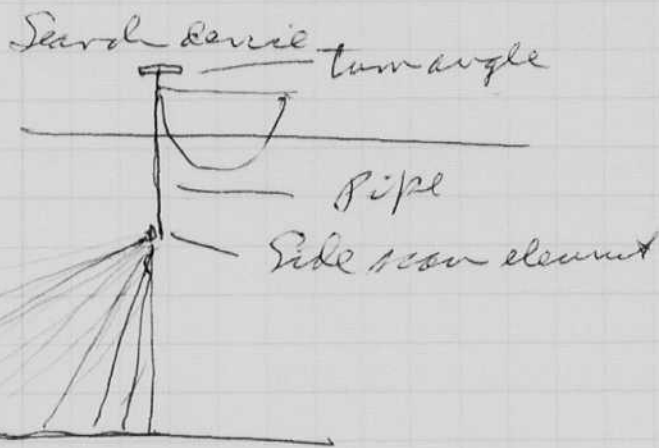 Search device
turn angle
Pipe
Side scan element